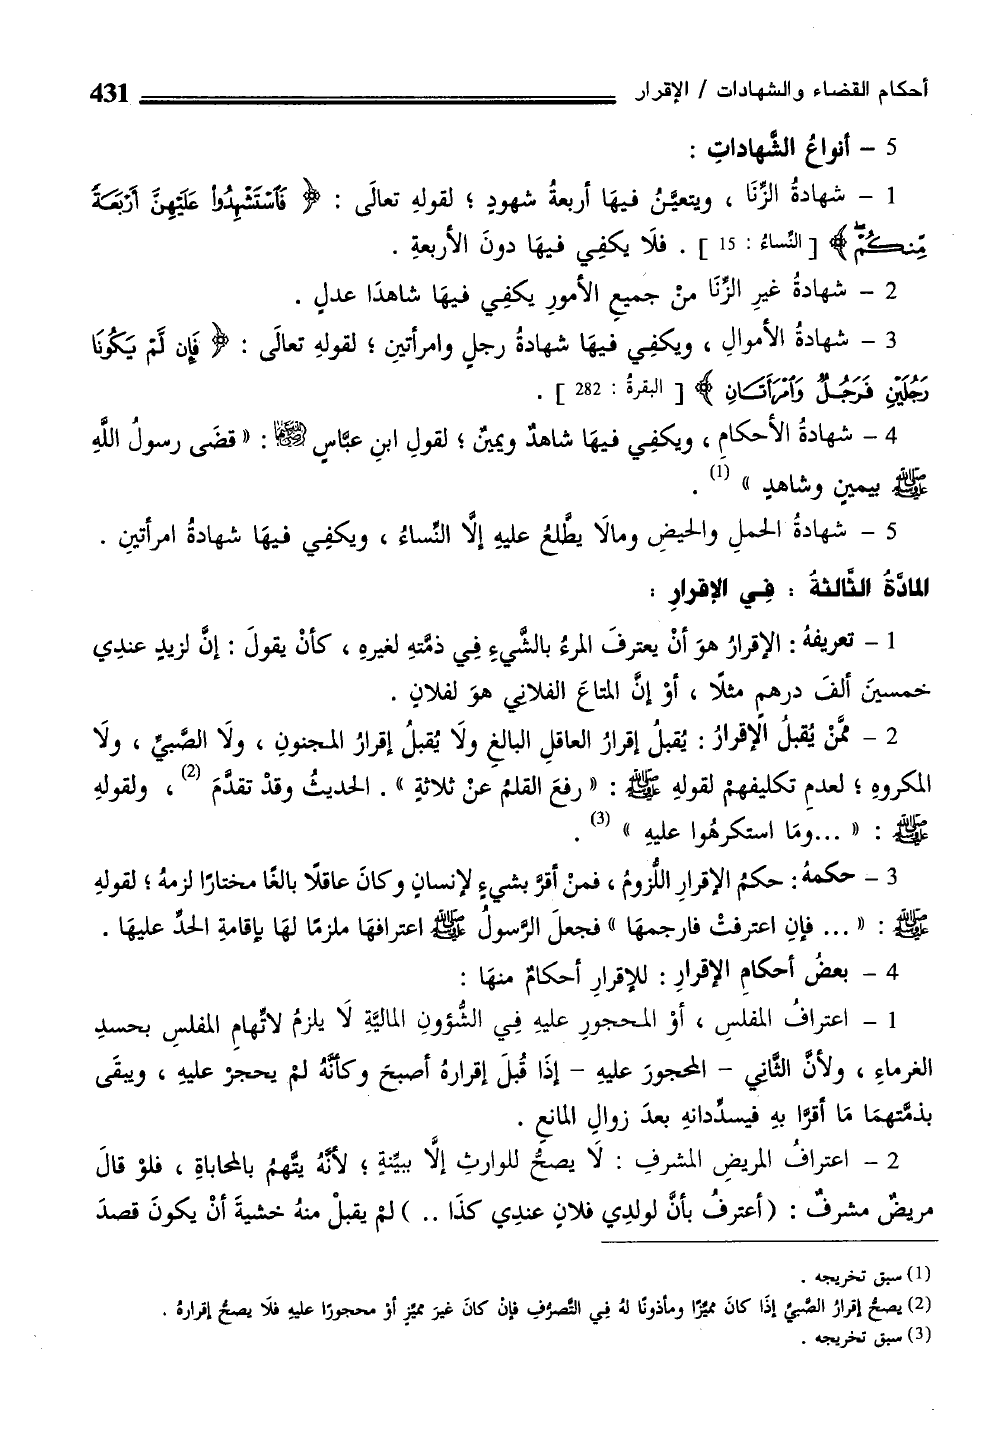 أحكام القضاء والشهادات / الإقرار 431
5 - أنواعُ الشَّهاداتِ :
1 - شهادةُ الزِّنَا ، ويتعيَّنُ فيهَا أربعةُ شهودٍ ؛ لقولهِ تعالَى : ﴿ فَاسْتَشْهِدُوا عَلَيْهِنَّ أَرْبَعَةً
مِّنكُمْ ﴾ [ النِّساءُ : 15 ] . فلَا يكفِي فيهَا دونَ الأربعةِ .
2 - شهادةُ غيرِ الزِّنَا منْ جميعِ الأمورِ يكفِي فيهَا شاهدَا عدلٍ .
3 - شهادةُ الأموالِ ، ويكفِي فيهَا شهادةُ رجلٍ وامرأتينِ ؛ لقولهِ تعالَى : ﴿ فَإِن لَّمْ يَكُونَا
رَجُلَيْنِ فَرَجُلٌ وَامْرَأَتَانِ ﴾ [ البقرةُ : 282 ] .
4 - شهادةُ الأحكامِ ، ويكفِي فيهَا شاهدٌ ويمينٌ ؛ لقولِ ابنِ عبَّاسٍ رضي الله عنهما : « قضَى رسولُ اللَّهِ
ﷺ بيمينٍ وشاهدٍ » (1) .
5 - شهادةُ الحملِ والحيضِ ومالَا يطَّلعُ عليهِ إلَّا النِّساءُ ، ويكفِي فيهَا شهادةُ امرأتينِ .
المادَّةُ الثَّالثةُ : فِي الإقرارِ :
1 - تعريفهُ : الإقرارُ هوَ أنْ يعترفَ المرءُ بالشَّيءِ فِي ذمَّتهِ لغيرهِ ، كأنْ يقولَ : إنَّ لزيدٍ عندِي
خمسينَ ألفَ درهمٍ مثلًا ، أوْ إنَّ المتاعَ الفلانِي هوَ لفلانٍ .
2 - ممَّنْ يُقبلُ الإقرارُ : يُقبلُ إقرارُ العاقلِ البالغِ ولَا يُقبلُ إقرارُ المجنونِ ، ولَا الصَّبيِّ ، ولَا
المكروهِ ؛ لعدمِ تكليفهمْ لقولهِ ﷺ : « رفعَ القلمُ عنْ ثلاثةٍ » . الحديثُ وقدْ تقدَّمَ (2) ، ولقولهِ
ﷺ : « ...ومَا استكرهُوا عليهِ » (3) .
3 - حكمهُ : حكمُ الإقرارِ اللُّزومُ ، فمنْ أقرَّ بشيءٍ لإنسانٍ وكانَ عاقلًا بالغًا مختارًا لزمهُ ؛ لقولهِ
ﷺ : « ... فإنِ اعترفتْ فارجمهَا » فجعلَ الرَّسولُ ﷺ اعترافهَا ملزمًا لهَا بإقامةِ الحدِّ عليهَا .
4 - بعضُ أحكامِ الإقرارِ : للإقرارِ أحكامٌ منهَا :
1 - اعترافُ المفلسِ ، أوْ المحجورِ عليهِ فِي الشُّؤونِ الماليَّةِ لَا يلزمُ لاتِّهامِ المفلسِ بحسدِ
الغرماءِ ، ولأنَّ الثَّانِي - المحجورَ عليهِ - إذَا قُبلَ إقرارهُ أصبحَ وكأنَّهُ لمْ يحجرْ عليهِ ، ويبقَى
بذمَّتهمَا مَا أقرَّا بهِ فيسدِّدانهِ بعدَ زوالِ المانعِ .
2 - اعترافُ المريضِ المشرفِ : لَا يصحُّ للوارثِ إلَّا ببيِّنةٍ ؛ لأنَّهُ يتَّهمُ بالمحاباةِ ، فلوْ قالَ
مريضٌ مشرفٌ : (أعترفُ بأنَّ لولدِي فلانٍ عندِي كذَا .. ) لمْ يقبلْ منهُ خشيةَ أنْ يكونَ قصدَ
(1) سبق تخريجه .
(2) يصحُّ إقرارُ الصَّبيِّ إذَا كانَ مميِّزًا ومأذونًا لهُ فِي التَّصرُّفِ فإنْ كانَ غيرَ مميِّزٍ أوْ محجورًا عليهِ فلَا يصحُّ إقرارهُ .
(3) سبق تخريجه .